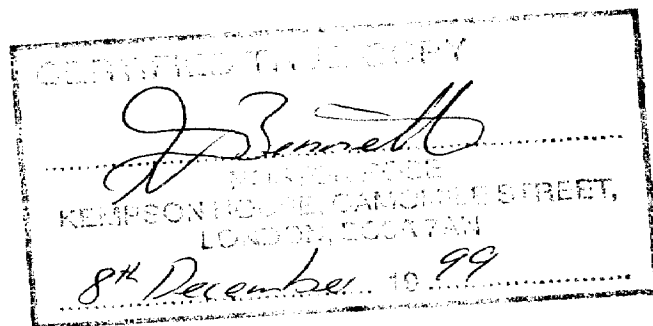 CERTIFIED TRUE COPY
Bennett
KEMPSON HOUSE, CAMOMILE STREET,
LONDON, EC3A 7AN
8th December 19 99